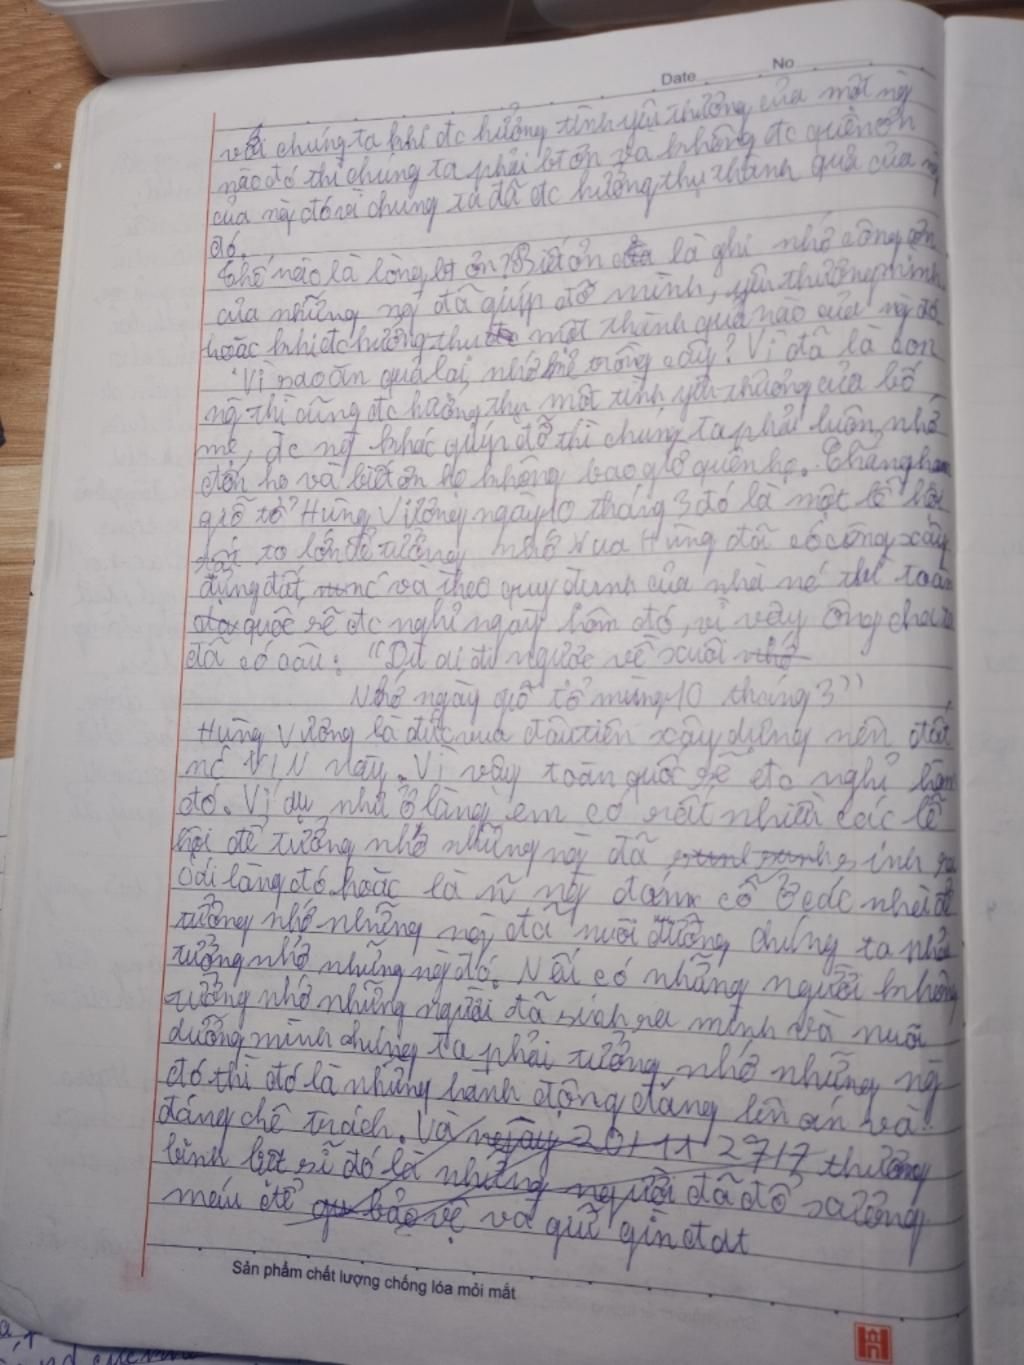 Date No
với chúng ta khi đc hưởng tình yêu thương của một ng
nào đó thì chúng ta phải bt ơn và không đc quên ơn
của ng đó vì chúng ta đã đc hưởng thụ thành quả của ng
đó.
Thế nào là lòng bt ơn? Biết ơn là ghi nhớ công ơn
của những ng đã giúp đỡ mình, yêu thương mình
hoặc khi đc hưởng thụ một thành quả nào của ng đó
"Vì sao ăn quả lại nhớ kẻ trồng cây? Vì đã là con
ng thì cũng đc hưởng thụ một tình yêu thương của bố
mẹ, đc ng khác giúp đỡ thì chúng ta phải luôn nhớ
đến họ và biết ơn họ không bao giờ quên họ. Chẳng hạn
giỗ tổ Hùng Vương ngày 10 tháng 3 đó là một lễ hội
to lớn để tưởng nhớ Vua Hùng đã có công xây
dựng đất nc và theo quy định của nhà nc thì toàn
quốc sẽ đc nghỉ ngày hôm đó, vì vậy ông cha ta
đã có câu: "Dù ai đi ngược về xuôi nhớ
Nhớ ngày giỗ tổ mùng 10 tháng 3"
Hùng Vương là đức vua đầu tiên xây dựng nên đất
nc V.N này. Vì vậy toàn quốc sẽ đc nghỉ hôm
đó. Ví dụ như ở làng em có rất nhiều các lễ
hội để tưởng nhớ những ng đã sinh ra
cái làng đó hoặc là ~ ng đám cỗ ở các nhà để
tưởng nhớ những ng đã nuôi dưỡng chúng ta phải
tưởng nhớ những ng đó. Nếu có những người không
tưởng nhớ những người đã sinh ra mình và nuôi
dưỡng mình chúng ta phải tưởng nhớ những ng
đó thì đó là những hành động đáng lên án và
đáng chê trách. Và ngày 20-11 27/7 thương
binh liệt sĩ đó là những người đã đổ xương
máu để bảo vệ và giữ gìn đất
Sản phẩm chất lượng chống lóa mỏi mắt